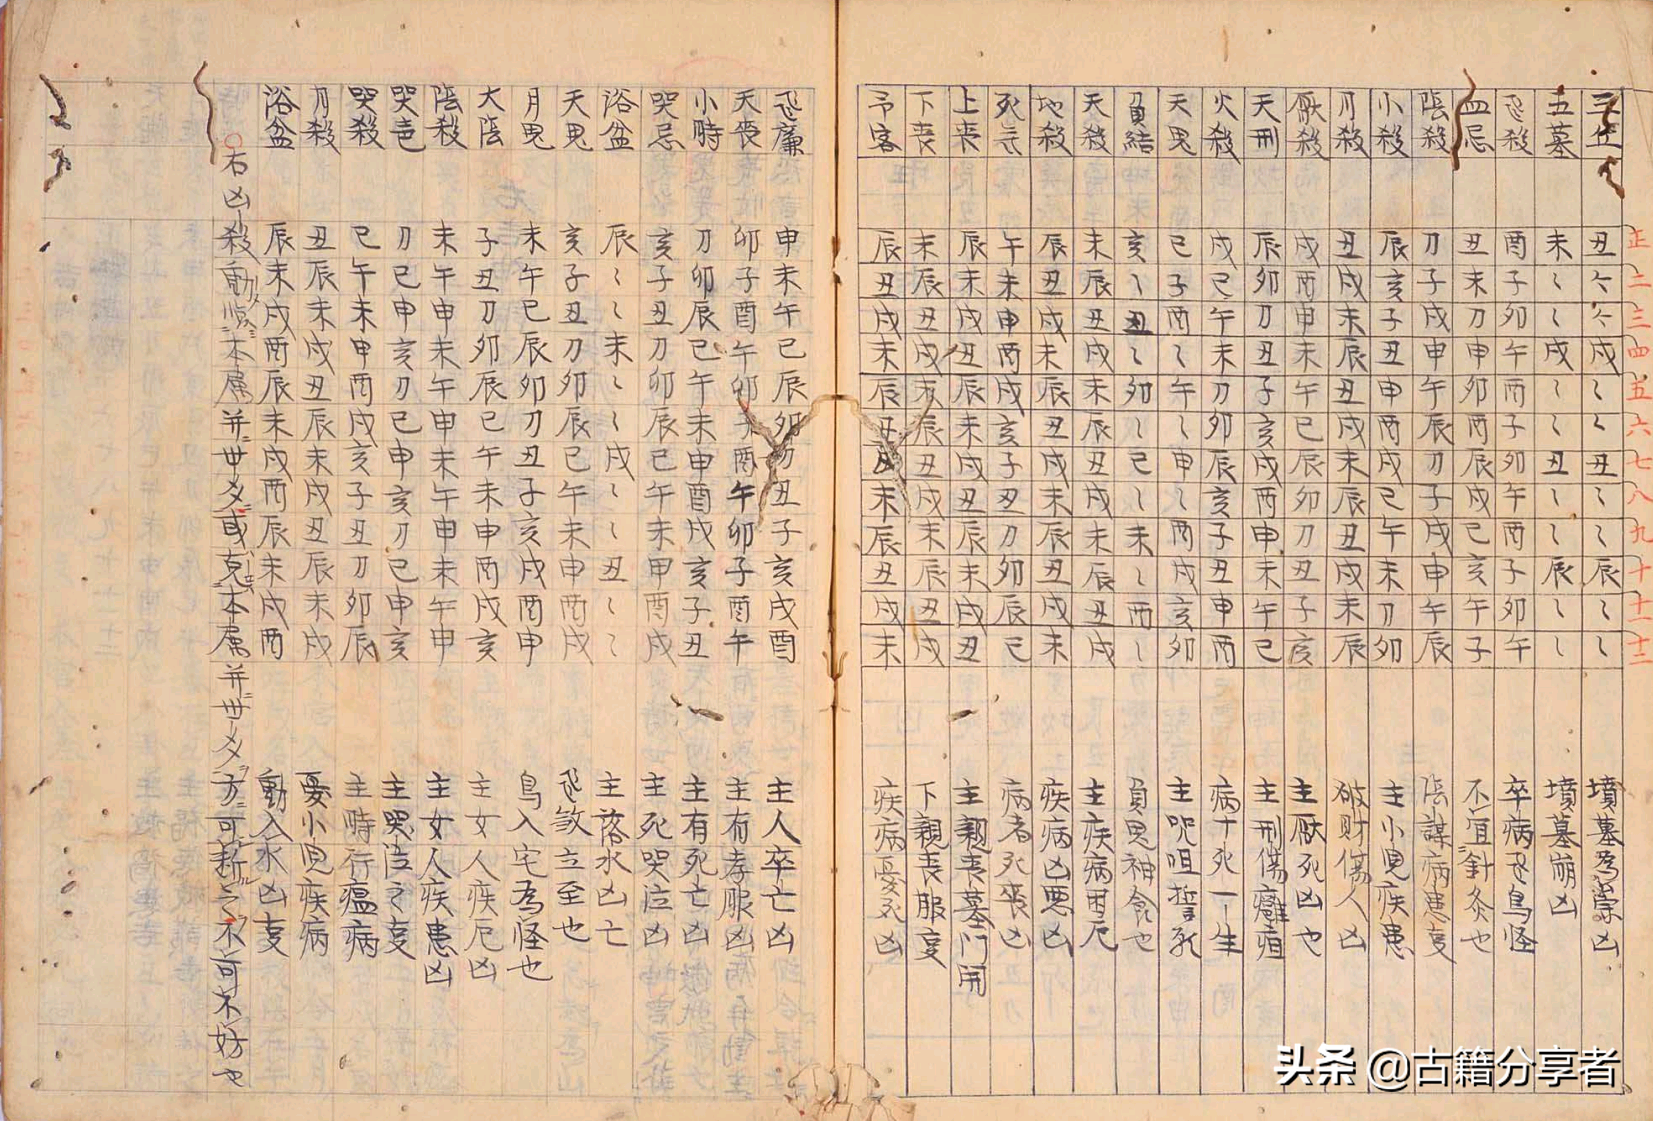 正 二 三 四 五 六 七 八 九 十 十一 十二
三丘 丑〻〻戌〻〻丑〻〻辰〻〻 墳墓為祟凶
五墓 未〻〻戌〻〻丑〻〻辰〻〻 墳墓崩凶
飞殺 酉子卯午酉子卯午酉子卯午 卒病飞鳥怪
血忌 丑未刀申卯酉辰戌巳亥午子 不宜針灸也
陰殺 刀子戌申午辰刀子戌申午辰 陰謀病患
小殺 辰亥子丑申酉戌巳午未刀卯 主小鬼疾患
月殺 丑戌未辰丑戌未辰丑戌未辰 破财傷人凶
厭殺 戌酉申未午巳辰卯刀丑子亥 主厭死凶也
天刑 辰卯刀丑子亥戌酉申未午巳 主刑傷癰疽
火殺 戌巳午未刀卯辰亥子丑申酉 病十死一生
天鬼 巳子酉〻午〻申〻酉戌亥卯 主咒咀誓死
負結 亥〻丑〻卯〻巳〻未〻酉〻 負鬼神食也
天殺 未辰丑戌未辰丑戌未辰丑戌 主疾病困厄
地殺 辰丑戌未辰丑戌未辰丑戌未 疾病凶悪凶
死气 午未申酉戌亥子丑刀卯辰巳 病者死喪凶
上丧 辰未戌丑辰未戌丑辰未戌丑 主親丧墓门開
下丧 未辰丑戌未辰丑戌未辰丑戌 下親丧服
吊客 辰丑戌未辰丑戌未辰丑戌未 疾病憂死凶
飞廉 申未午巳辰卯刀丑子亥戌酉 主人卒亡凶
天丧 卯子酉午卯子酉午卯子酉午 主有孝服凶
小時 刀卯辰巳午未申酉戌亥子丑 主有死亡凶
哭忌 亥子丑刀卯辰巳午未申酉戌 主死哭泣凶
浴盆 辰〻〻未〻〻戌〻〻丑〻〻 主落水凶亡
天鬼 亥子丑刀卯辰巳午未申酉戌 飞殺立至也
月鬼 未午巳辰卯刀丑子亥戌酉申 鳥入宅為怪也
大陰 子丑刀卯辰巳午未申酉戌亥 主女人疾厄凶
陰殺 未午申未午申未午申未午申 主女人疾患凶
哭声 刀巳申亥刀巳申亥刀巳申亥 主哭泣之
哭殺 巳午未申酉戌亥子丑刀卯辰 主時行瘟病
月殺 丑辰未戌丑辰未戌丑辰未戌 憂小鬼疾病
浴盆 辰未戌酉辰未戌酉辰未戌酉 動入水凶
○右凶殺動临本属并世爻或克本属并世爻方可斷之不可不妨也
头条 @古籍分享者